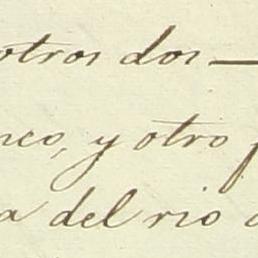 otros dos —
nco, y otro
a del rio